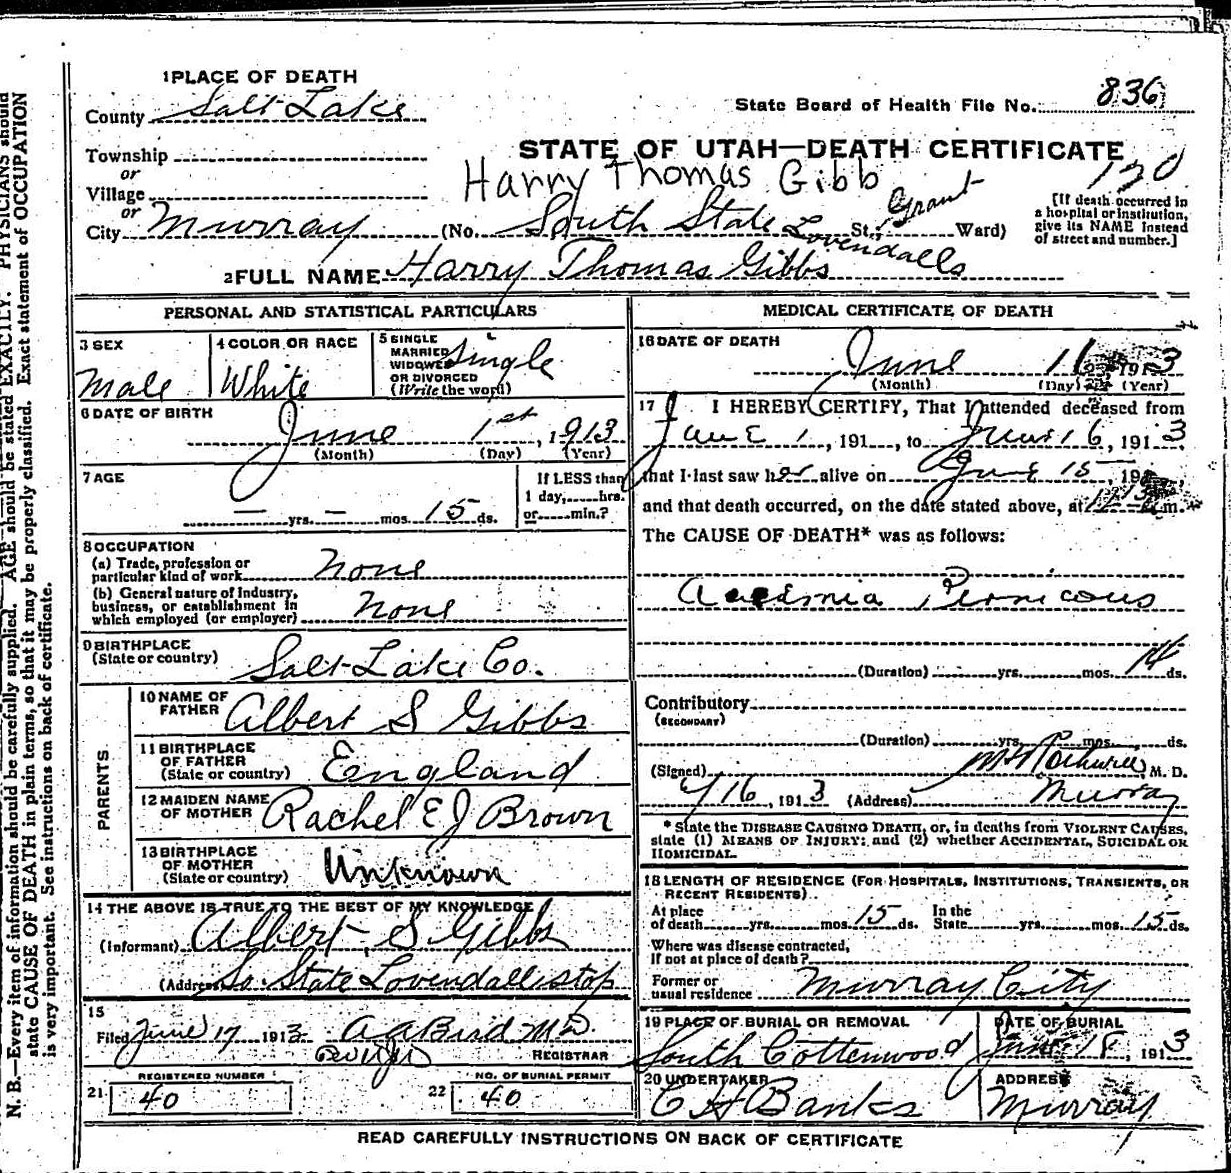 1 PLACE OF DEATH
County Salt Lake
State Board of Health File No. 836
Township
or
Village
or
City Murray
STATE OF UTAH—DEATH CERTIFICATE
Harry Thomas Gibb
170
(No. South State Lovendalls St.; Grant Ward)
[If death occurred in
a hospital or institution,
give its NAME instead
of street and number.]
2 FULL NAME Harry Thomas Gibbs
PERSONAL AND STATISTICAL PARTICULARS
3 SEX
Male
4 COLOR OR RACE
White
5 SINGLE
MARRIED
WIDOWED
OR DIVORCED
(Write the word)
Single
6 DATE OF BIRTH
June 1st, 1913
(Month) (Day) (Year)
7 AGE
— yrs. — mos. 15 ds.
If LESS than
1 day, hrs.
or min.?
8 OCCUPATION
(a) Trade, profession or
particular kind of work None
(b) General nature of Industry,
business, or establishment in
which employed (or employer) None
9 BIRTHPLACE
(State or country) Salt Lake Co.
PARENTS
10 NAME OF
FATHER Albert S Gibbs
11 BIRTHPLACE
OF FATHER
(State or country) England
12 MAIDEN NAME
OF MOTHER Rachel E J Brown
13 BIRTHPLACE
OF MOTHER
(State or country) Unknown
14 THE ABOVE IS TRUE TO THE BEST OF MY KNOWLEDGE
(Informant) Albert S Gibbs
(Address) So. State Lovendall stop
15
Filed June 17 1913 A A Bird M D.
REGISTRAR
REGISTERED NUMBER
21 40
NO. OF BURIAL PERMIT
22 40
MEDICAL CERTIFICATE OF DEATH
16 DATE OF DEATH
June 16 1913
(Month) (Day) (Year)
17 I HEREBY CERTIFY, That I attended deceased from
June 1, 191 , to June 16, 1913
that I last saw h alive on June 15 191
and that death occurred, on the date stated above, at m.
The CAUSE OF DEATH* was as follows:
Anemia Pernicous
(Duration) yrs. mos. 14 ds.
Contributory
(SECONDARY)
(Duration) yrs. mos. ds.
(Signed) Rothwell M. D.
6/16, 1913 (Address) Murray
* State the DISEASE CAUSING DEATH, or, in deaths from VIOLENT CAUSES,
state (1) MEANS OF INJURY; and (2) whether ACCIDENTAL, SUICIDAL OR
HOMICIDAL.
18 LENGTH OF RESIDENCE (FOR HOSPITALS, INSTITUTIONS, TRANSIENTS, OR
RECENT RESIDENTS).
At place
of death yrs. mos. 15 ds.
In the
State yrs. mos. 15 ds.
Where was disease contracted,
if not at place of death?
Former or
usual residence Murray City
19 PLACE OF BURIAL OR REMOVAL
South Cottonwood
DATE OF BURIAL
June 18, 1913
20 UNDERTAKER
C H Banks
ADDRESS
Murray
READ CAREFULLY INSTRUCTIONS ON BACK OF CERTIFICATE
N. B.—Every item of information should be carefully supplied. AGE should be stated EXACTLY. PHYSICIANS should
state CAUSE OF DEATH in plain terms, so that it may be properly classified. Exact statement of OCCUPATION
is very important. See instructions on back of certificate.